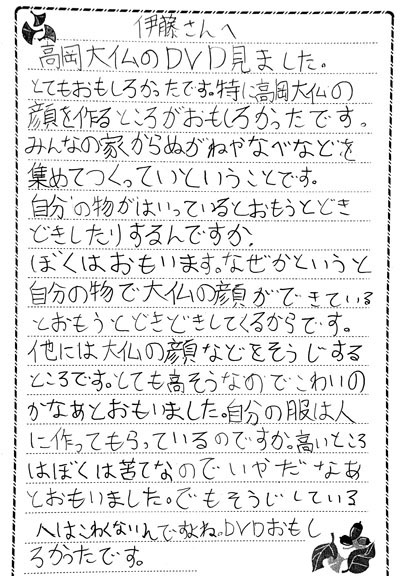 伊藤さんへ
高岡大仏のDVD見ました。
とてもおもしろかったです。特に高岡大仏の
顔を作るところがおもしろかったです。
みんなの家からぬがねやなべなどを
集めてつくっていということです。
自分の物がはいっているとおもうとどき
どきしたりするんですか。
ぼくはおもいます。なぜかというと
自分の物で大仏の顔ができている
とおもうとどきどきしてくるからです。
他には大仏の顔などをそうじする
ところです。とても高そうなのでこわいの
かなあとおもいました。自分の服は人
に作ってもらっているのですか。高いところ
はぼくは苦てなのでいやだなあ
とおもいました。でもそうじしている
人はこわくないんですよね。DVDおもし
ろかったです。